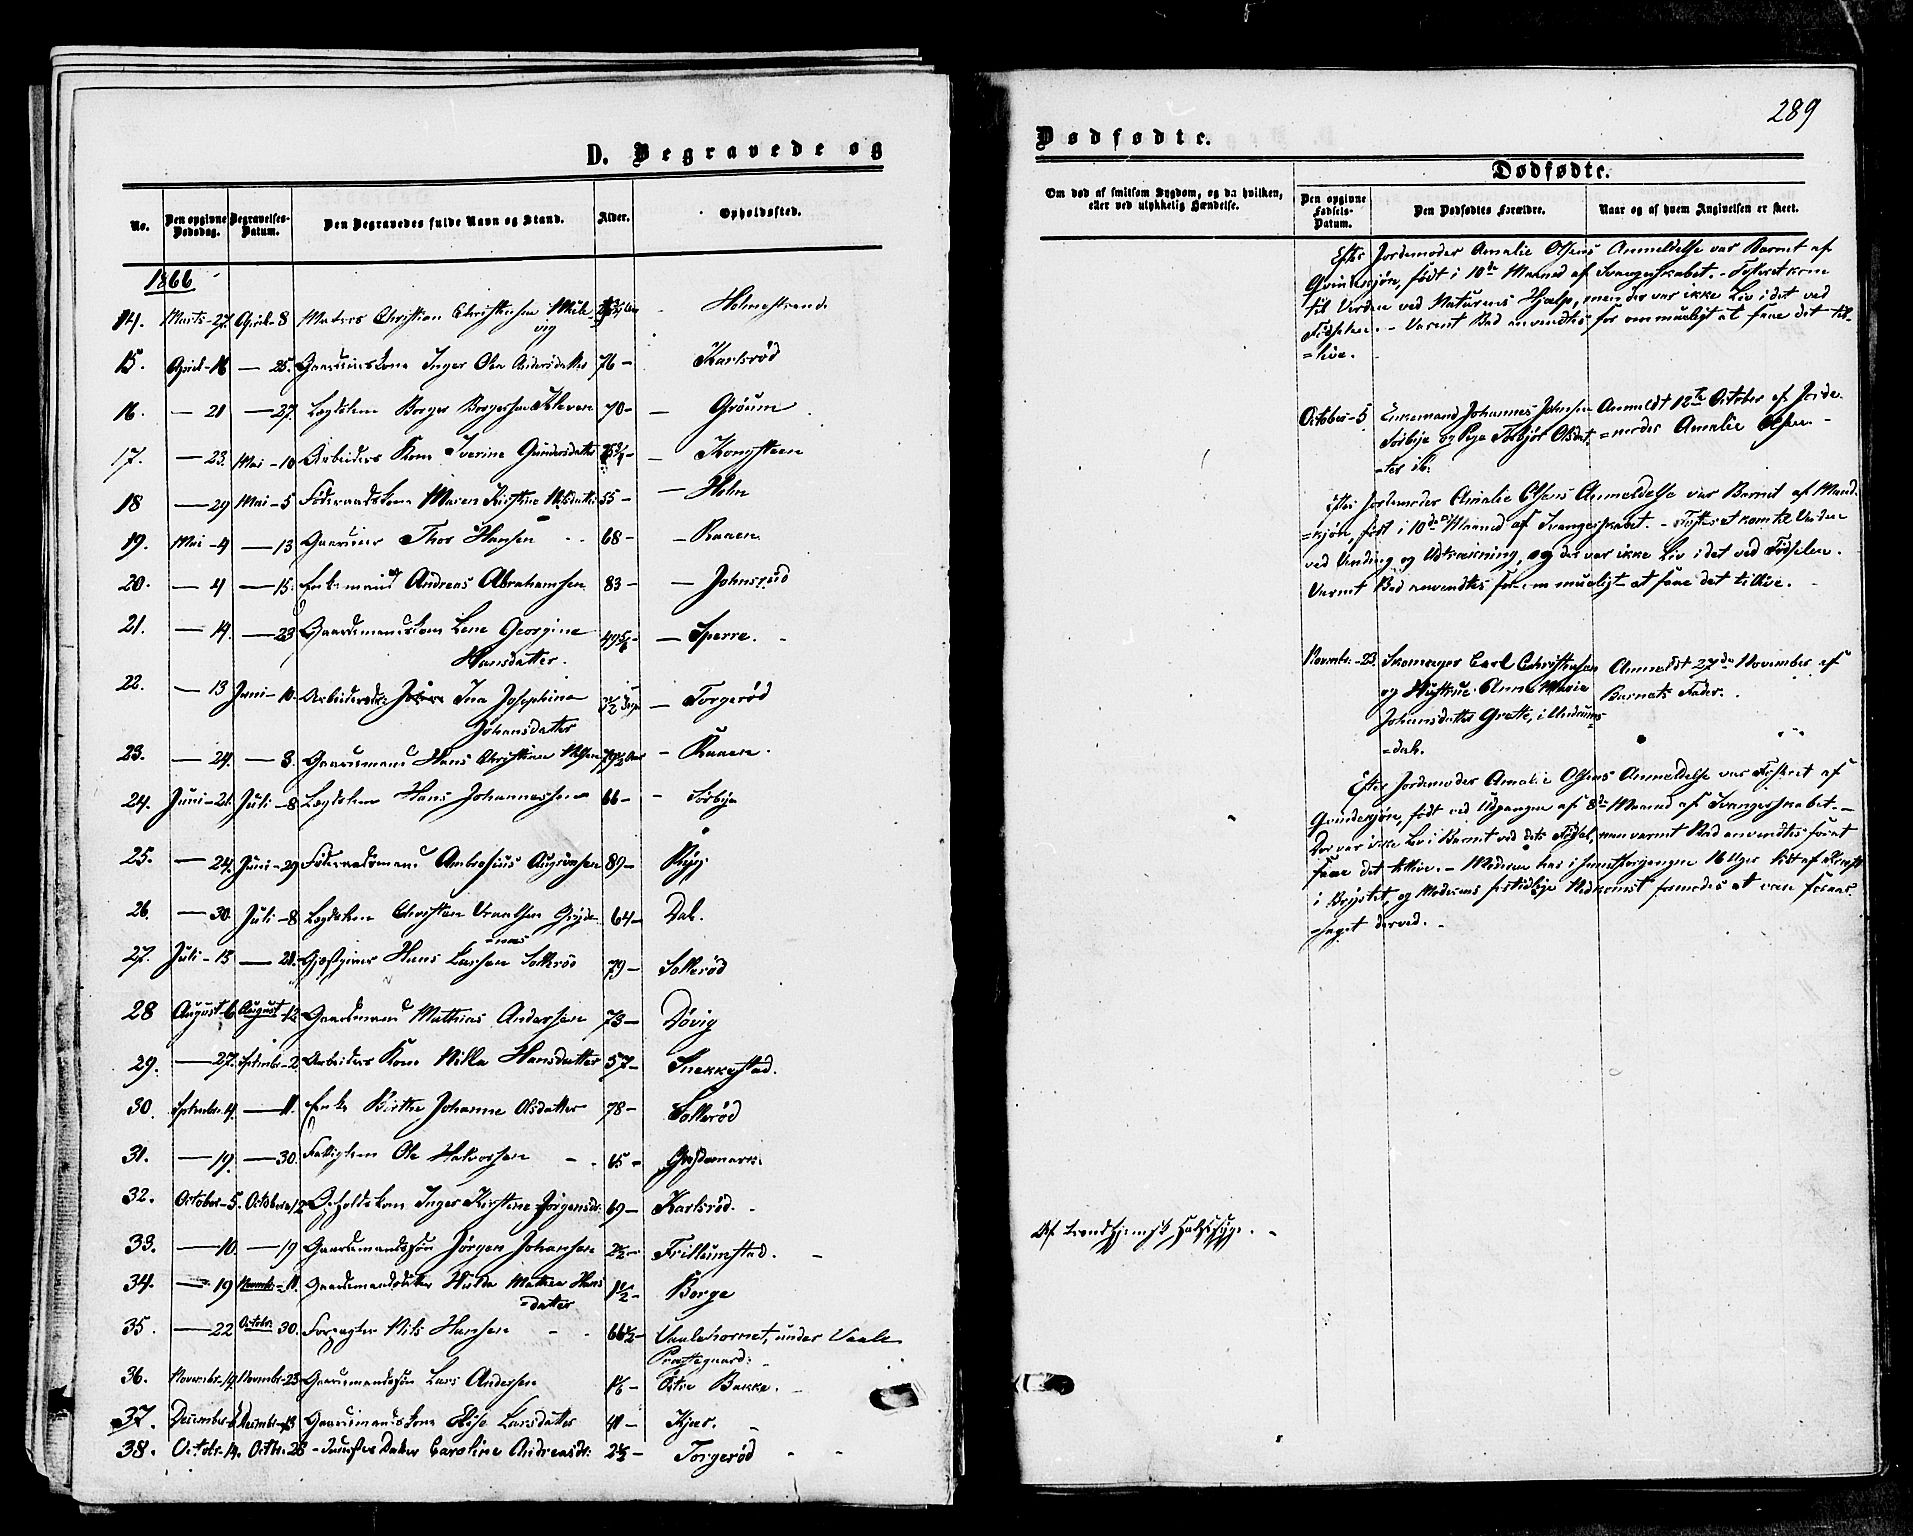 D. Begravede og
No.
Den opgivne Dødsdag.
Begravelses-Datum.
Den Begravedes fulde Navn og Stand.
Alder.
Opholdssted.
1866
14. Marts-27. April-8 Christian Christensen Holmestrand
15. April-16 — 25. Gaardmandskone Inger Olea Andersdatter 76 — Karlsrød
16. — 21 — 27. Lægdslem Borger Borgersen 70 — Grøum
17. — 23. Mai-10 Arbeiders Kone Iverine Gundersdatter — Kongsteen
18 — 29 Mai-5 Føderaadskone Maren Kirstine Nilsdatter 55 — Holm
19. Mai-4 — 13 Gaardmand Thor Hansen 68 — Raaen
20. — 4 — 15. Enkemand Andreas Abrahamsen 83 — Johnsrud
21. — 14. — 23 Gaardmandskone Lene Georgine 49 5/6 — Sperre.
Hansdatter.
22. — 13 Juni-10. Ina Josephine — Torgerød
Johansdatter
23. — 24. — 3. Gaardmand Hans Christian Nilsen — Raaen.
24. Juni-21. Juli-8 Lægdslem Hans Johannessen 66 — Sørbye
25. — 24. Juni-29 Føderaadsmand Ambrosius 89 —
26. — 30. Juli-8 Lægdslem Christen Gryde- 64 — Dal.
=næs
27. Juli-13 — 21. Gjæstgiver Hans Larsen Solerød 79 — Solerød
28 August-6 August-12 Gaardmand Mathias Andersen 73 — Døvig
29. — 27. Septembr.-2 Arbeiders Kone Nilla Hansdatter 57 — Snekkestad.
30. Septembr. 4. — 11. Enke Birthe Johanne Olsdatter 78 — Solerød
31. — 19. — 30. Fattiglem Ole Halvorsen 65 —
32. October-5. October-12 Opholdskone Inger Kirstine Jørgensdr. 69 — Karlsrød.
33. — 10. — 19 Gaardmandssøn Jørgen Johansen — Trillumstad.
34. — 19 Novembr.-11. Gaardmandsdatter Hulda Mathea Hans 1 1/2 — Borge
=datter
35. — 22 Octobr. 30. Forpagter Nils Hansen 66 1/2 — Vaalehornet, under Vaale
Præstegaard.
36. Novembr. 19. Novembr.-23 Gaardmandssøn Lars Andersen — Østre Bakke.
37. December Decembr.-13 Gaardmandskone Else Larsdatter 41 — Kjær.
38. Octobr. 14. Octbr. 28 Datter Caroline Andreasdr. — Torgerød
289
Dødfødte.
Om død af smitsom Sygdom, og da hvilken, eller ved ulykkelig Hændelse.
Dødfødte.
Den opgivne Fødsels-Datum.
Den Dødfødtes Forældre.
Naar og af hvem Angivelsen er skeet.
Efter Jordemoder Amalie Olsens Anmeldelse var Barnet af
Qvindekjøn, født i 10de Maaned af Svangerskabet. - Fosteret kom
til Verden ved Naturens Hjælp, men der var ikke Liv i det ved
Fødselen. - Varmt Bad anvendtes for om mueligt at faae det til-
=live.
October-5 Enkemand Johannes Johnsen Anmeldt 12te October af Jorde-
Sørbye og Pige Torbjør Olsdat- =moder Amalie Olsen. -
=ter ib.
Efter Jordemoder Amalie Olsens Anmeldelse var Barnet af Mand-
=kjøn, født i 10de Maaned af Svangerskabet. - Fosteret kom til Verden
ved Vending og Udtrækning, og der var ikke Liv i det ved Fødselen.
Varmt Bad anvendtes for om mueligt at faae det tillive.
Novembr.-23. Skomager Carl Christensen Anmeldt 27de November af
og Hustrue Anne Marie Barnets Fader.
Johannsdatter Grette, i Undrums-
=dal.
Efter Jordemoder Amalie Olsens Anmeldelse var Fosteret af
Qvindekjøn, født ved Udgangen af 8de Maaned af Svangerskabet. -
Der var ikke Liv i Barnet ved dets Fødsel, men varmt Bad anvendtes for at
faae det tillive. - Moderen har i 16 Uger lidt af
i Brystet, og Moderens Nedkomst formodes at være foraar-
=saget derved. -
Af trondhjemsk Halssyge. -